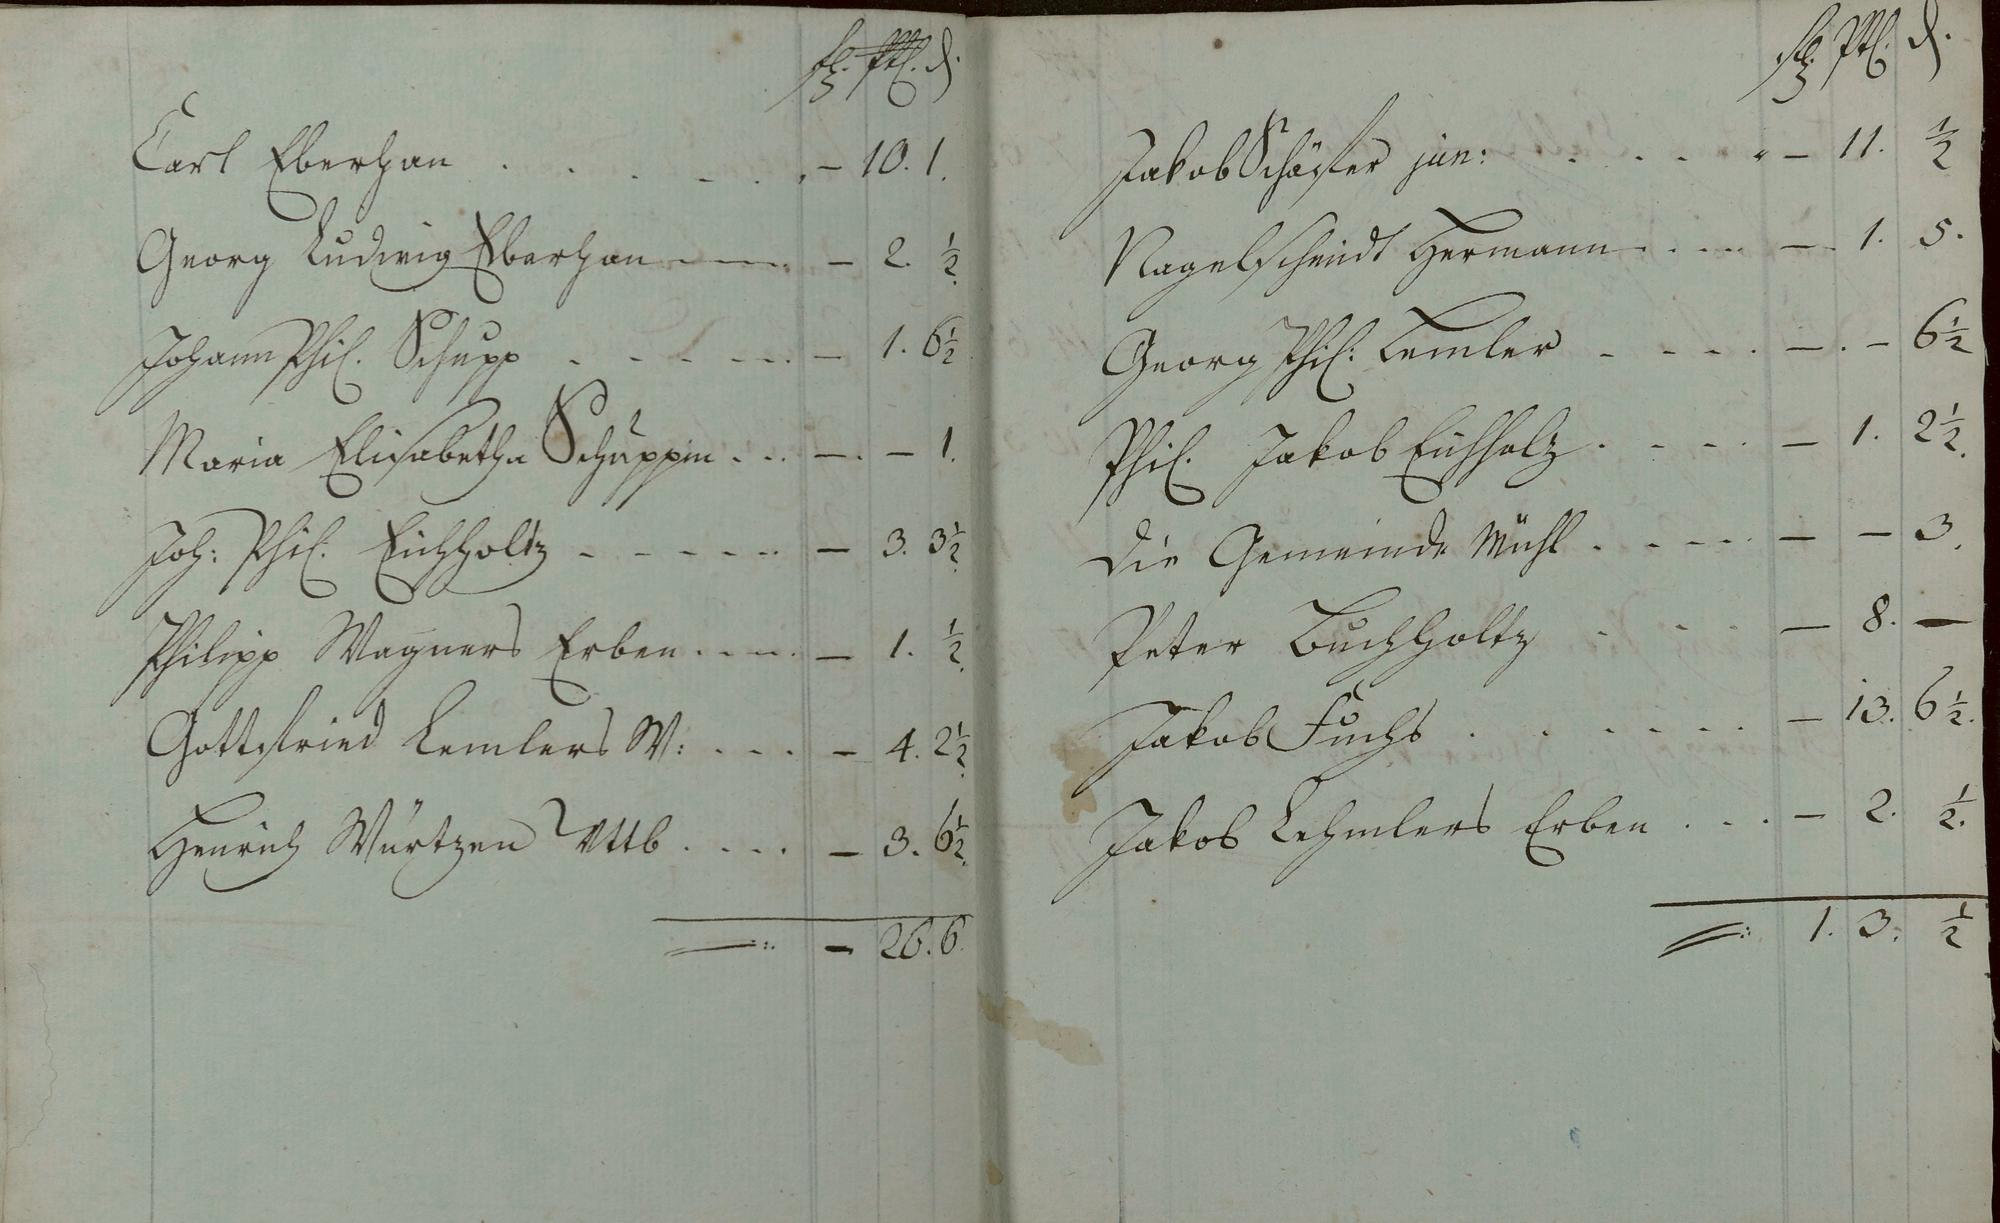 Carl Eberhan . . . . . . – 10. 1.
Georg Ludwig Eberhan – – – – 2. ½
Johann Phil. Schupp . – – – – – 1. 6½
Maria Elisabetha Schuppin . . . – . – 1.
Joh: Phil. Eichholtz – – – – – – 3. 3½
Philipp Wagners Erben . . . . – 1. ½
Gottfried Lemlers W: . . . . – 4. 2½
Henrich Würtzen Wttb . . . . – 3. 6½
– 26. 6.
Jakob Schäffer jun: . . . . – 11. ½
Nagelschmidt Hermann . . . . – 1. 5.
Georg Phil: Lemler – – – . – . – 6½
Phil. Jakob Eichholz . – – – . – 1. 2½
Die Gemeinde Mühl . – – – . – – 3.
Peter Buchholtz . . . – 8. –
Jakob Fuchs . . . . . . – 13. 6½
Jakob Lehmlers Erben . . . – 2. ½
1. 3. ½